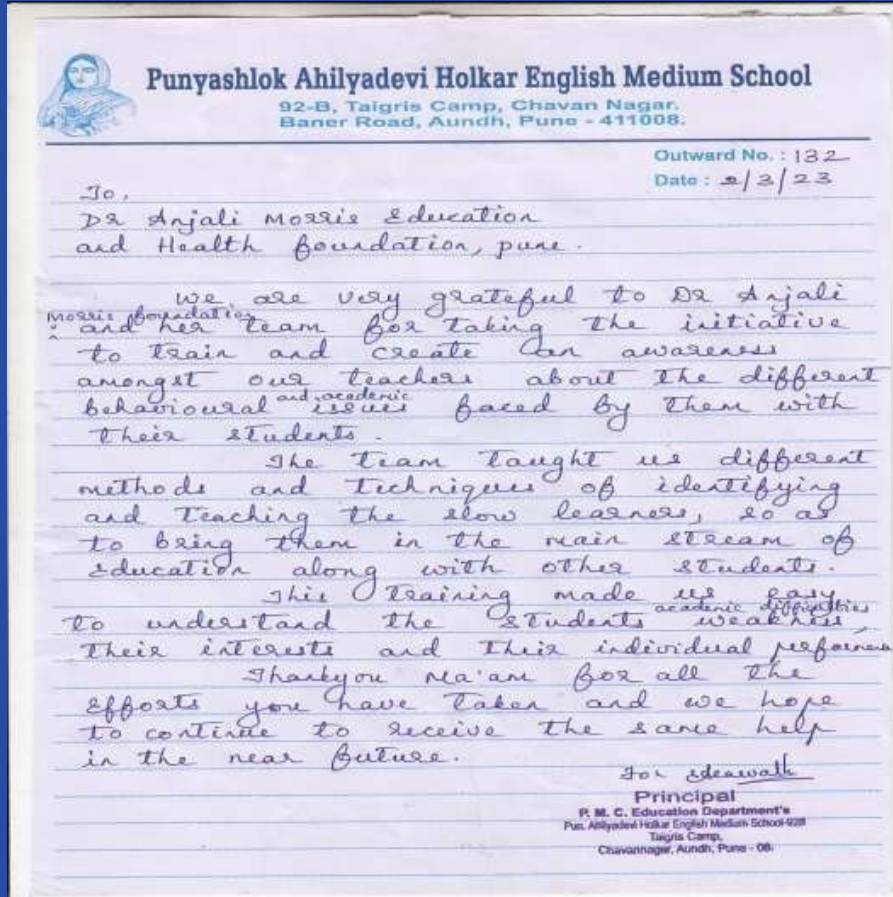 Punyashlok Ahilyadevi Holkar English Medium School
92-B, Taigris Camp, Chavan Nagar.
Baner Road, Aundh, Pune - 411008.
Outward No. : 132
Date : 2/3/23
To,
Dr Anjali Morris Education
and Health Foundation, pune.
We are very grateful to Dr Anjali
morris foundation
^ and her team for taking the initiative
to train and create an awareness
amongst our teachers about the different
behavioural and academic issues faced by them with
their students.
The team taught us different
methods and techniques of identifying
and teaching the slow learners, so as
to bring them in the main stream of
education along with other students.
This training made us easy
to understand the students academic difficulties weakness,
their interests and their individual performance
Thankyou Ma'am for all the
efforts you have taken and we hope
to continue to receive the same help
in the near future.
For
Principal
P. M. C. Education Department's
Pun. Ahilyadevi Holkar English Medium School-92B
Taigris Camp,
Chavannagar, Aundh, Pune - 08.